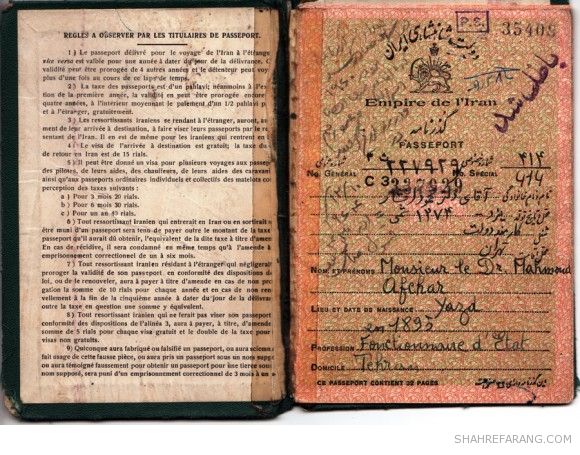 REGLES A OBSERVER PAR LES TITULAIRES DE PASSEPORT.
1) Le passeport délivré pour le voyage de l'Iran à l'étrange
vice versa est valble pour une année à dater du jour de la délivrance. C
validité peut être prorogée de 4 autres années et le détenteur peut voy
plus d'une fois au cours de ce laps de temps.
2) La taxe des passeports est d'un pahlavi; néanmoins à l'ex
tion de la première année, la validité en peut être prorogée encore
quatre années, à l'intérieur moyennant le paiement d'un 1/2 pahlavi p
et à l'étranger.
3) Les ressortissants iraniens se rendant à l'étranger, auront, au
ment de leur arrivée à destination, à faire viser leurs passeports par le re
sentant de l'Iran. Il en est de même pour les iraniens qui rentrent en
4) Le visa de l'arrivée à destination est gratuit; la taxe du
de retour en Iran est de 15 rials.
5) Il peut être donné un visa pour plusieurs voyages aux passe
des pilotes, de leurs aides, des chauffeurs, de leurs aides des caravan
ainsi qu'aux passeports ordinaires individuels et collectifs des matelots co
perception des taxes suivants :
a) Pour 3 mois 20 rials.
b) Pour 6 mois 30 rials.
c) Pour un an 40 rials.
6) Tout ressortissant iranien qui entrerait en Iran ou en sortirait
être muni d'un passeport sera tenu de payer outre le montant de la taxe
passeport qu'il aurait dû obtenir, l'équivalent de la dite taxe à titre d'amen
En cas de récidive, il sera condamné en même temps qu'à l'amende à
emprisonnement correctionnel de un à six mois.
7) Tout ressortissant iranien résidant à l'étranger qui négligera
proroger la validité de son passeport en conformité des dispositions de
loi, ou de le renouveler, aura à payer à titre d'amende en cas de non pro
gation la somme de 10 rials pour chaque année et en cas de non ren
vellement à la fin de la cinquième année à dater du jour de la délivra
outre la taxe en question une somme y équivalent.
8) Tout ressortissant iranien qui ne ferait pas viser son passeport
conformité des dispositions de l'alinéa 3, aura à payer, à titre d'amende
somme de 5 rials pour chaque visa gratuit et le double de la taxe pour
visas non gratuits.
9) Quiconque aura fabriqué ou falsifié un passeport, ou aura sciemm
fait usage de cette fausse pièce, ou aura pris un passeport sous un nom supp
ou aura témoigné faussement pour obtenir un passeport pour une tierce sous
nom supposé, sera puni d'un emprisonnement correctionnel de 3 mois à un
P.S.
35405
دولت شاهنشاهی ایران
باطل شد
Empire de l'Iran
گذرنامه
PASSEPORT
No. GÉNÉRAL ۲۲۷۹۲۹ No. SPÉCIAL ۴۱۴
C 414
۱۲۷۴
تهران
NOM ET PRÉNOMS Monsieur le Dr. Mahmoud
Afchar
LIEU ET DATE DE NAISSANCE Yazd
en 1895
PROFESSION Fonctionnaire d'Etat
DOMICILE Tehran
CE PASSEPORT CONTIENT 32 PAGES
SHAHREFARANG.COM